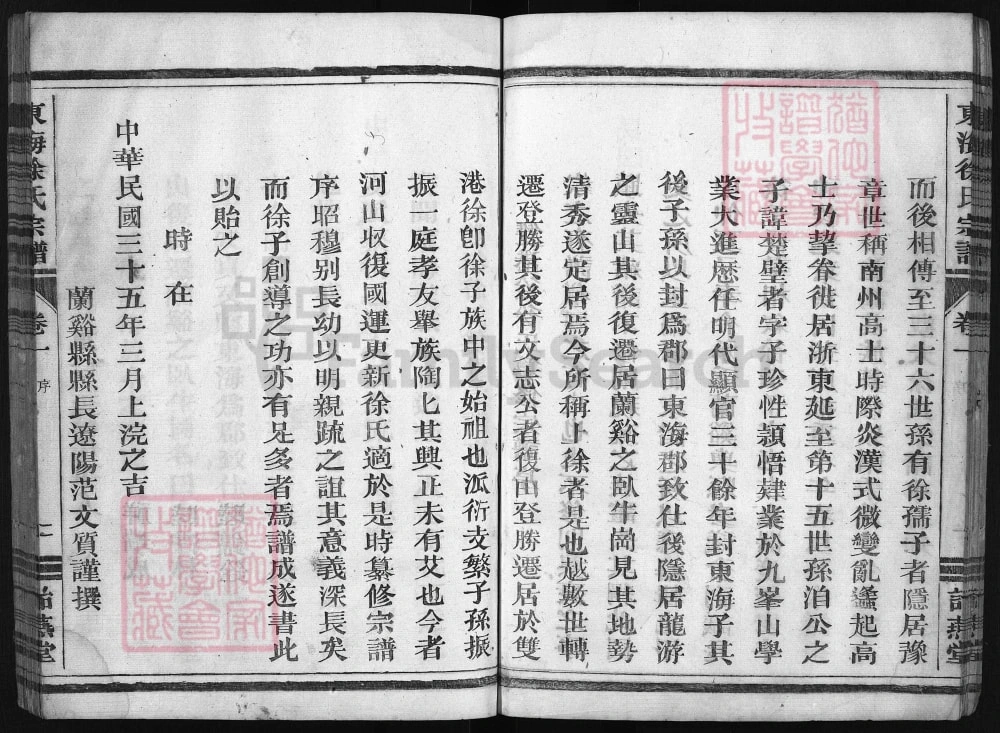 東海徐氏宗譜 卷一 詒燕堂
而後相傳至三十六世孫有徐孺子者隱居豫
章世稱南州高士時際炎漢式微變亂蠭起高
士乃挈眷徙居浙東延至第十五世孫泊公之
子諱楚璧者字子珍性頴悟肄業於九峯山學
業大進歷任明代顯官三十餘年封東海子其
後子孫以封爲郡曰東海郡致仕後隱居龍游
之靈山其後復遷居蘭谿之臥牛崗見其地勢
清秀遂定居焉今所稱上徐者是也越數世轉
遷登勝其後有文志公者復由登勝遷居於雙
港徐卽徐子族中之始祖也派衍支繁子孫振
振一庭孝友舉族陶匕其興正未有艾也今者
河山收復國運更新徐氏適於是時纂修宗譜
序昭穆别長幼以明親疏之誼其意義深長矣
而徐子創導之功亦有足多者焉譜成遂書此
以貽之
時在
中華民國三十五年三月上浣之吉
蘭谿縣縣長遼陽范文質謹撰
東海徐氏宗譜 卷一 序 詒燕堂
FamilySearch